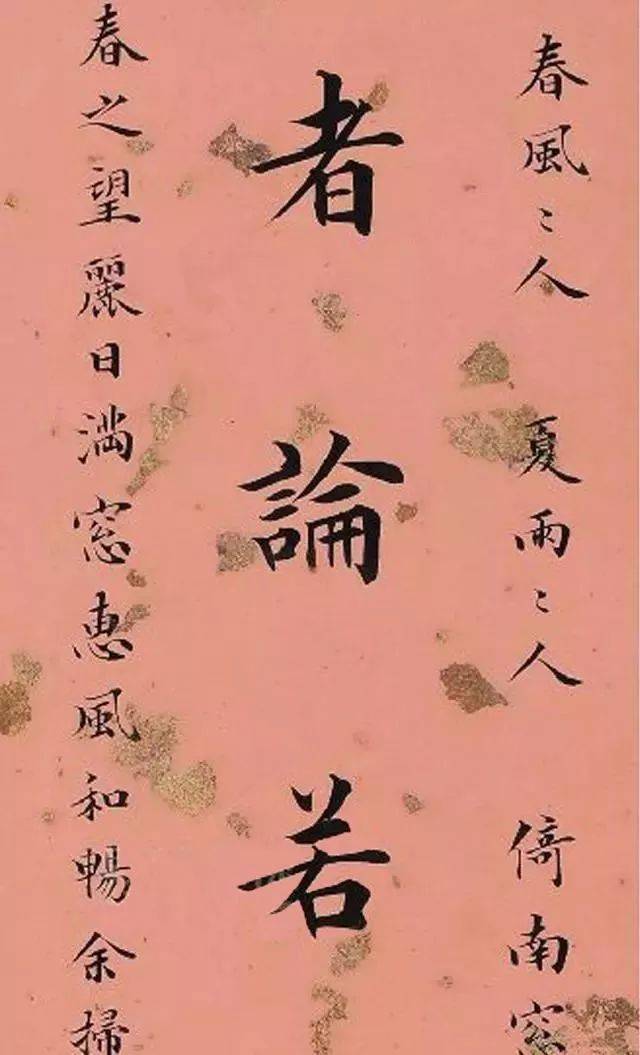 春風〻人 夏雨〻人 倚南窓
者論若
春之望麗日満窓惠風和暢余掃